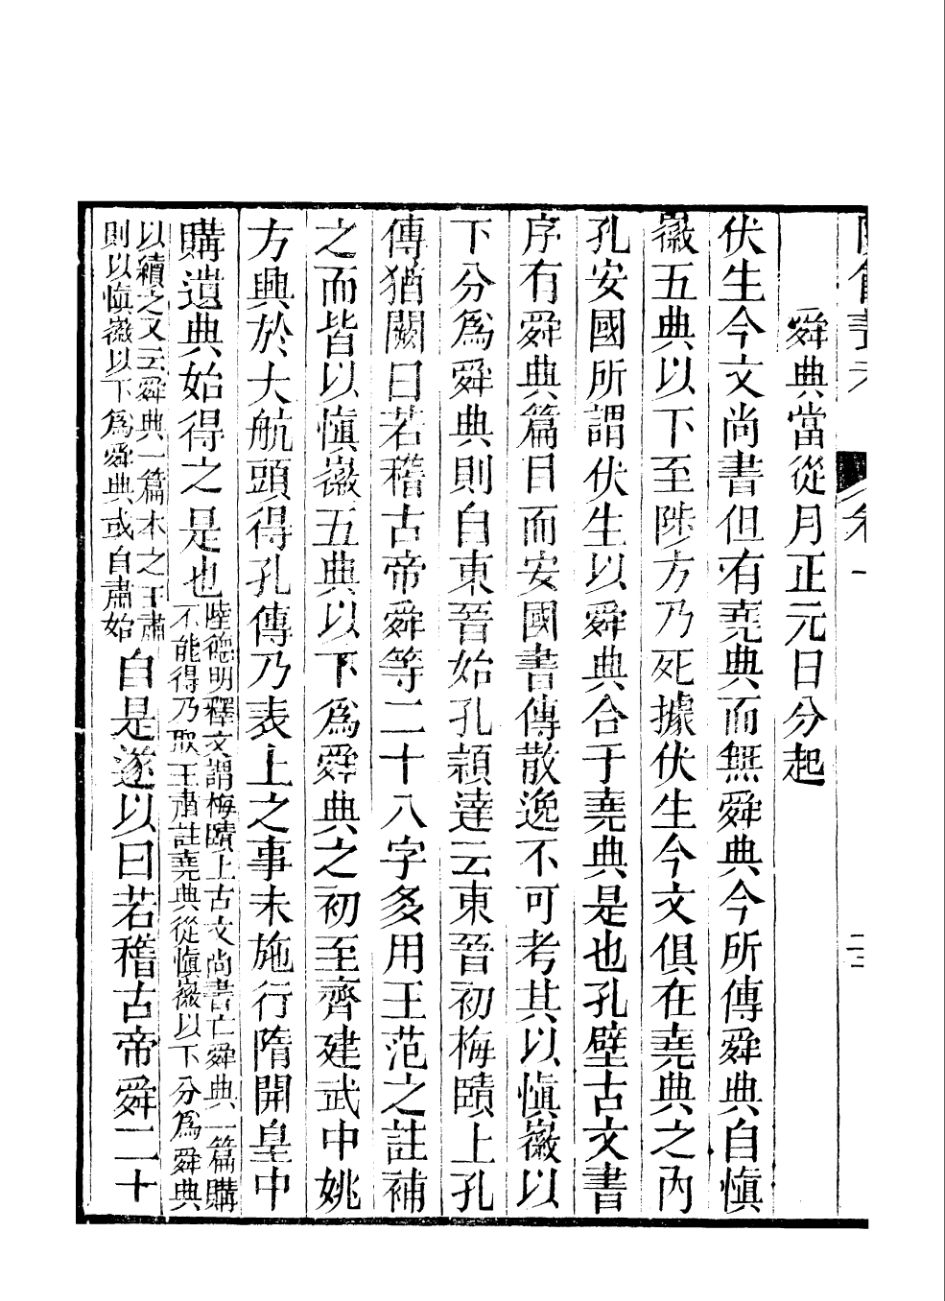 陔餘叢考 卷一 二三
舜典當從月正元日分起
伏生今文尚書但有堯典而無舜典今所傳舜典自愼
徽五典以下至陟方乃死據伏生今文俱在堯典之內
孔安國所謂伏生以舜典合于堯典是也孔壁古文書
序有舜典篇目而安國書傳散逸不可考其以愼徽以
下分爲舜典則自東晉始孔頴達云東晉初梅賾上孔
傳猶闕曰若稽古帝舜等二十八字多用王范之註補
之而皆以愼徽五典以下爲舜典之初至齊建武中姚
方興於大航頭得孔傳乃表上之事未施行隋開皇中
購遺典始得之是也陸德明釋文謂梅賾上古文尚書亡舜典一篇購
不能得乃取王肅註堯典從愼徽以下分爲舜典
以續之又云舜典一篇本之王肅
則以愼徽以下爲舜典或自肅始自是遂以曰若稽古帝舜二十